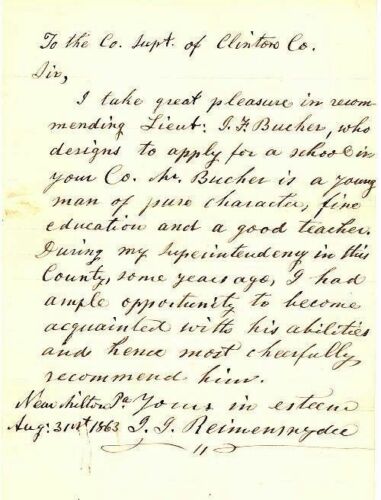 To the Co. Supt. of Clinton Co.
Sir,
I take great pleasure in recom-
mending Lieut. J. F. Bucher, who
designs to apply for a school in
your Co. Mr. Bucher is a young
man of pure character, fine
education and a good teacher.
During my Superintendency in this
County, some years ago, I had
ample opportunity to become
acquainted with his abilities
and hence most cheerfully
recommend him.
Near Milton Pa. Yours in esteem
Aug. 31st 1863 J. J. Reimensnyder